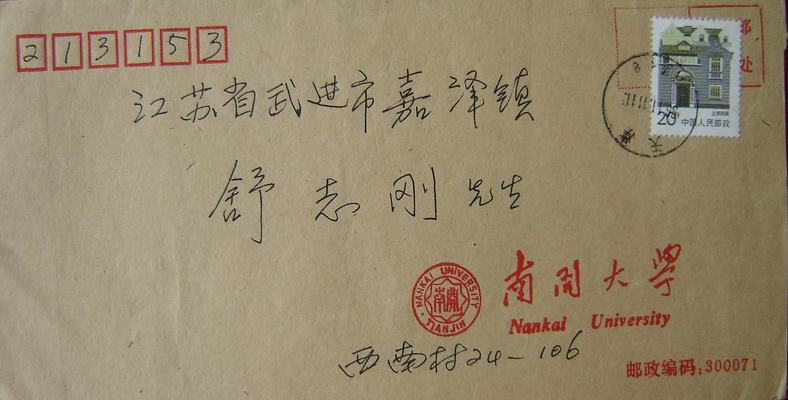 213153
邮
处
江苏省武进市嘉泽镇
20
上海民居
中国人民邮政
天津
舒志刚先生
NANKAI UNIVERSITY
南開
TIANJIN
南开大学
Nankai University
西南村24-106
邮政编码:300071